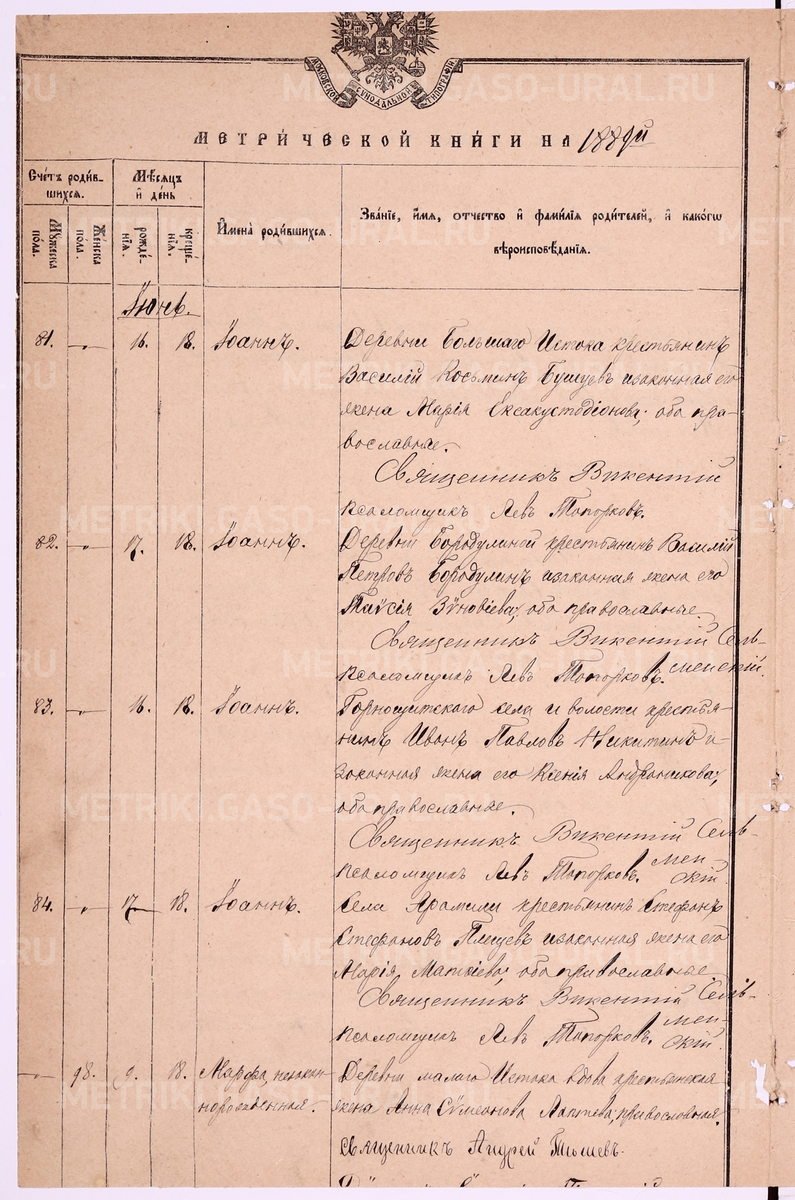 МОСКОВСКОЙ СѴНОДАЛЬНОЙ ТИПОГРАФІИ
МЕТРИЧЕСКОЙ КНИГИ НА 1889й
Счетъ родившихся.
Мѣсяцъ и день
Мужеска пола.
Женска пола.
рожденія.
крещенія.
Имена родившихся.
Званіе, имя, отчество и фамилія родителей, и какогѡ
вѣроисповѣданія.
Іюнь.
81. „ 16. 18. Іоаннъ. Деревни Большаго Истока крестьянинъ
Василій Козьминъ Бушуевъ изаконная его
жена Марія Ексакустодіонова; оба пра-
вославные.
Священникъ Викентій
Псаломщикъ Левъ Топорковъ.
82. „ 17. 18. Іоаннъ. Деревни Бородулиной крестьянинъ Василій
Петровъ Бородулинъ изаконная жена его
Таѵсія Зѵновіева; оба православные.
Священникъ Викентій Сель-
менскій.
Псаломщикъ Левъ Топорковъ.
83. „ 16. 18. Іоаннъ. Горнощитскаго села и волости крестья-
нинъ Иванъ Павловъ Никитинъ и
законная жена его Ксенія Андроникова;
оба православные.
Священникъ Викентій Сель-
мен
скій.
Псаломщикъ Левъ Топорковъ.
84. „ 17. 18. Іоаннъ. Села Арамили крестьянинъ Стефанъ
Стефановъ Плещевъ изаконная жена его
Марія Матѳіева; оба православные.
Священникъ Викентій Сель-
мен-
скій.
Псаломщикъ Левъ Топорковъ.
„ 98. 9. 18. Марфа, незакон-
норожденная.
Деревни малаго Истока вдова крестьянская
жена Анна Сѵмеонова Лаптева; православная.
Священникъ Андрей
METRIKI.GASO-URAL.RU